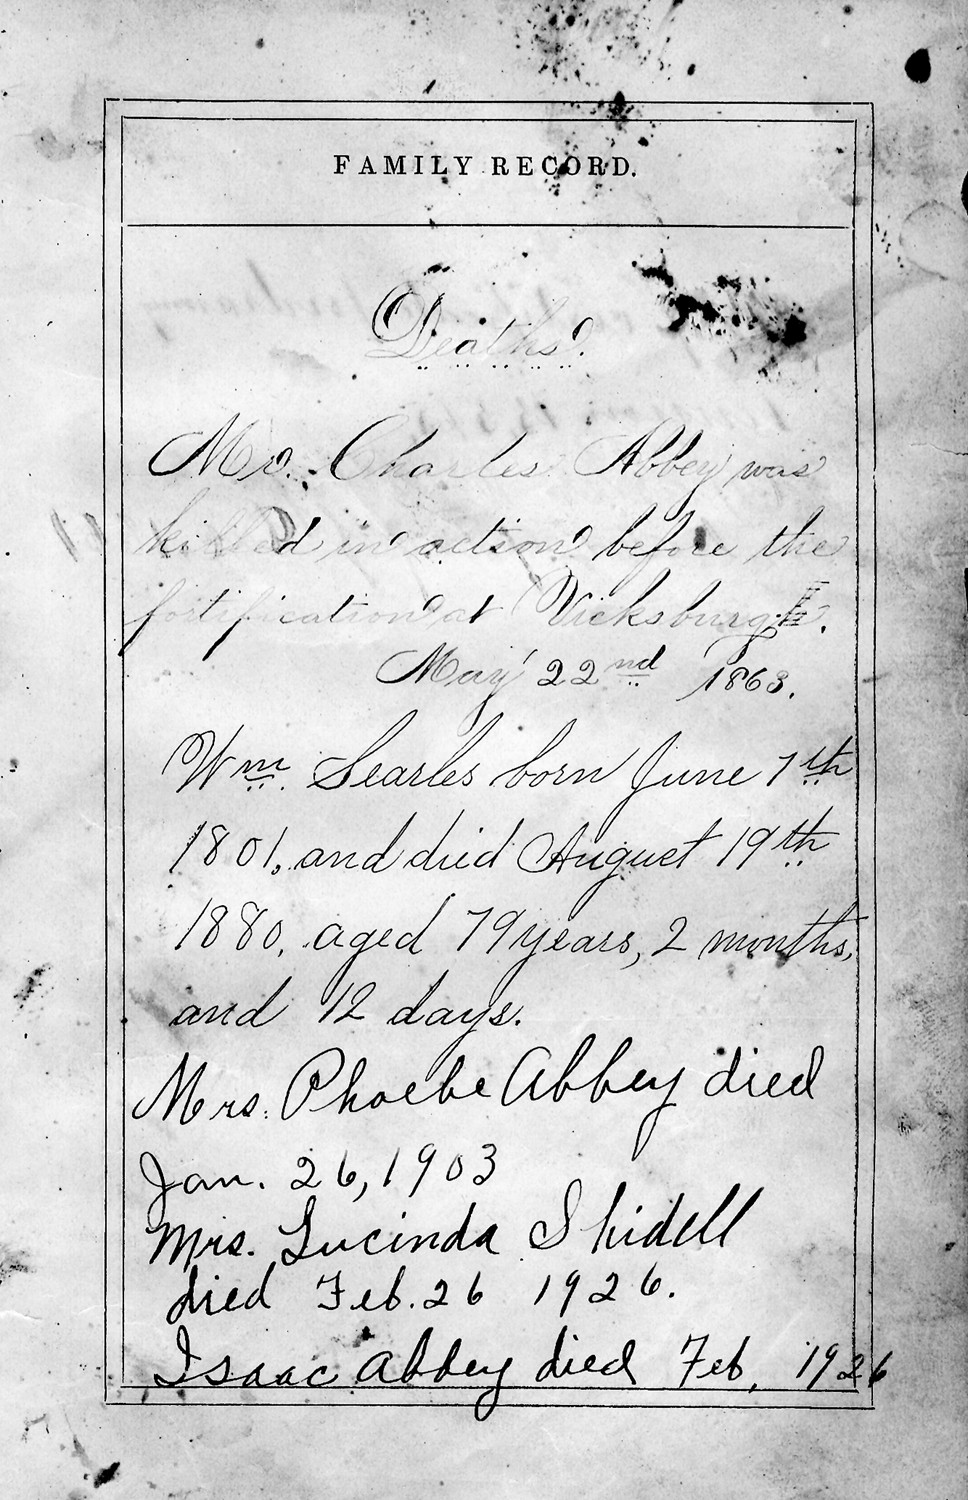 FAMILY RECORD.
Deaths.
Mr. Charles Abbey was
killed in action before the
fortification at Vicksburgh.
May 22nd 1863.
Wm. Searles born June 7th
1801. and died August 19th
1880. aged 79 years, 2 months,
and 12 days.
Mrs. Phoebe Abbey died
Jan. 26, 1903
Mrs. Lucinda Skidell
died Feb. 26 1926.
Isaac Abbey died Feb, 1926